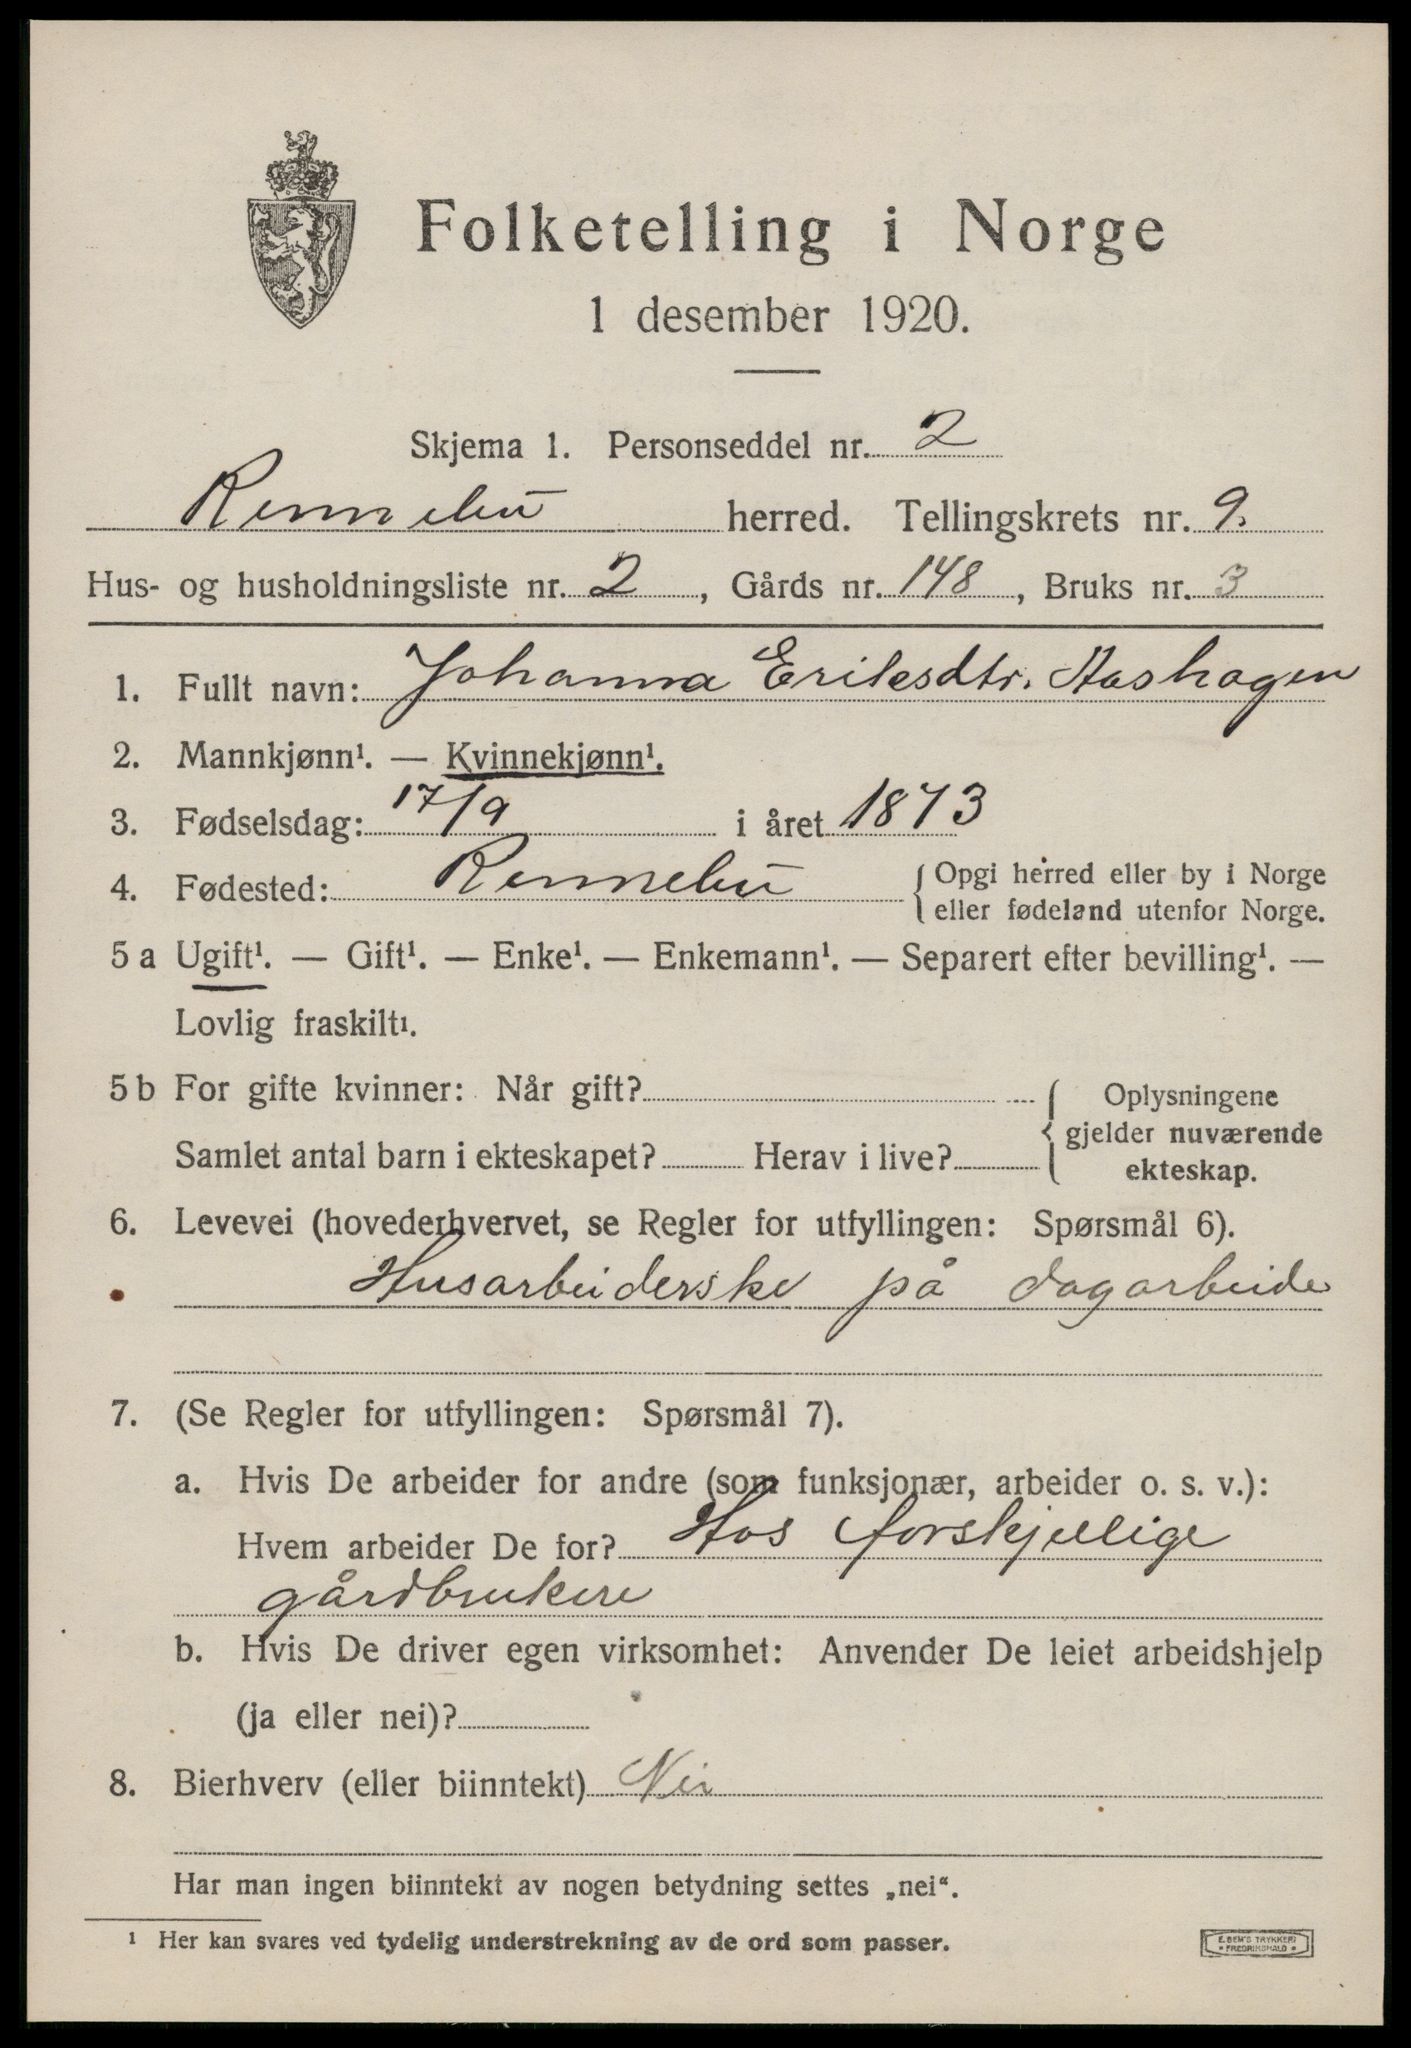 Folketelling i Norge
1 desember 1920.
Skjema 1. Personseddel nr. 2
Rennebu herred. Tellingskrets nr. 9.
Hus- og husholdningsliste nr. 2, Gårds nr. 148, Bruks nr. 3
1. Fullt navn: Johanna Eriksdtr. Aashagen
2. Mannkjønn¹. — Kvinnekjønn¹.
3. Fødselsdag: 17/9 i året 1873
4. Fødested: Rennebu { Opgi herred eller by i Norge
eller fødeland utenfor Norge.
5 a Ugift¹. — Gift¹. — Enke¹. — Enkemann¹. — Separert efter bevilling¹. —
Lovlig fraskilt¹.
5 b For gifte kvinner: Når gift? { Oplysningene
gjelder nuværende
Samlet antal barn i ekteskapet? Herav i live? ekteskap.
6. Levevei (hovederhvervet, se Regler for utfyllingen: Spørsmål 6).
Husarbeiderske på dagarbeide
7. (Se Regler for utfyllingen: Spørsmål 7).
a. Hvis De arbeider for andre (som funksjonær, arbeider o. s. v.):
Hvem arbeider De for? Hos forskjellige
gårdbrukere
b. Hvis De driver egen virksomhet: Anvender De leiet arbeidshjelp
(ja eller nei)?
8. Bierhverv (eller biinntekt) Nei
Har man ingen biinntekt av nogen betydning settes „nei“.
¹ Her kan svares ved tydelig understrekning av de ord som passer.
E. SEM'S TRYKKERI
* FREDRIKSHALD *